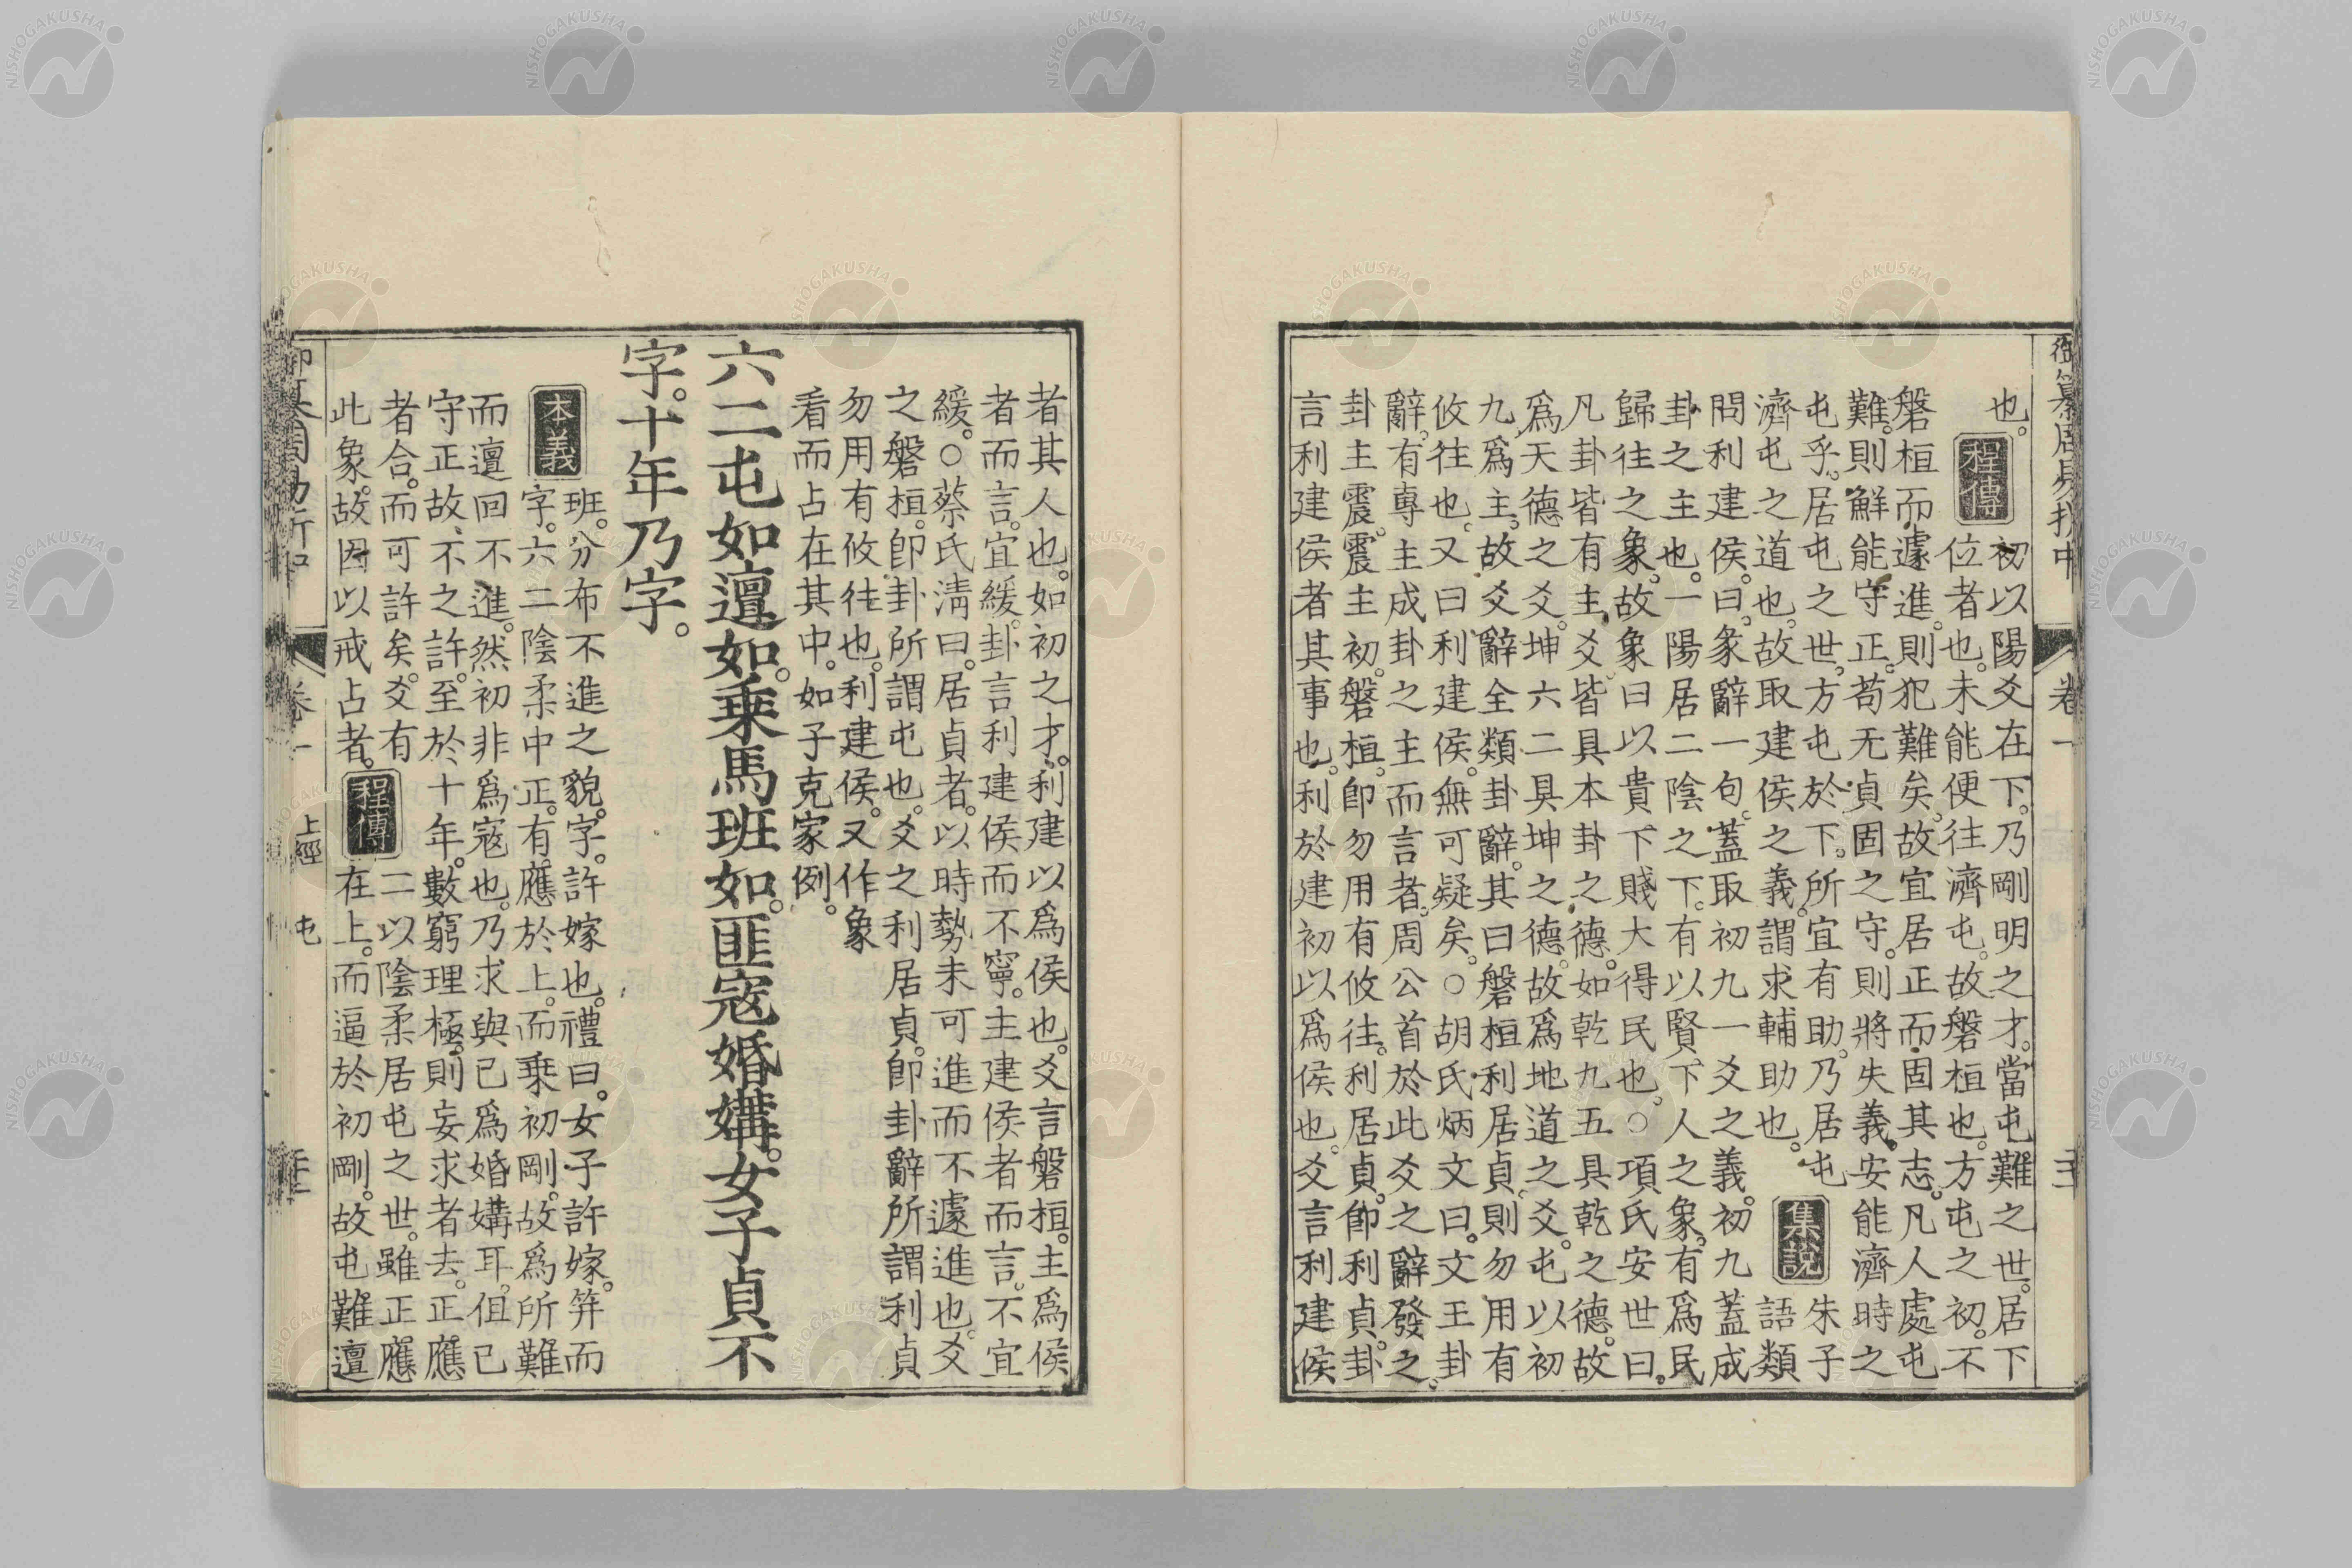 御纂周易折中 卷一
也。程傳初以陽爻在下。乃剛明之才。當屯難之世。居下
位者也。未能便往濟屯。故磐桓也。方屯之初。不
磐桓而遽進。則犯難矣。故宜居正而固其志。凡人處屯
難。則鮮能守正。苟无貞固之守。則將失義。安能濟時之
屯乎。居屯之世。方屯於下。所宜有助。乃居屯
濟屯之道也。故取建侯之義。謂求輔助也。
集說朱子語類
問利建侯。曰。彖辭一句。蓋取初九一爻之義。初九蓋成
卦之主也。一陽居二陰之下。有以賢下人之象。有爲民
歸往之象。故象曰以貴下賤大得民也。○項氏安世曰。
凡卦皆有主爻。皆具本卦之德。如乾九五具乾之德。故
爲天德之爻。坤六二具坤之德。故爲地道之爻。屯以初
九爲主。故爻辭全類卦辭。其曰磐桓利居貞。則勿用有
攸往也。又曰利建侯。無可疑矣。○胡氏炳文曰。文王卦
辭。有專主成卦之主而言者。周公首於此爻之辭發之。
卦主震。震主初。磐桓。卽勿用有攸往。利居貞。卽利貞。卦
言利建侯者其事也。利於建初以爲侯也。爻言利建侯
者其人也。如初之才。利建以爲侯也。爻言磐桓。主爲侯
者而言。宜緩。卦言利建侯而不寧。主建侯者而言。不宜
緩。○蔡氏淸曰。居貞者。以時勢未可進而不遽進也。爻
之磐桓。卽卦所謂屯也。爻之利居貞。卽卦辭所謂利貞
勿用有攸往也。利建侯。又作象
看而占在其中。如子克家例。
六二屯如邅如。乘馬班如。匪寇婚媾。女子貞不
字。十年乃字。
本義班。分布不進之貌。字。許嫁也。禮曰。女子許嫁。笄而
字。六二陰柔中正。有應於上。而乘初剛。故爲所難
而邅回不進。然初非爲寇也。乃求與己爲婚媾耳。但己
守正故不之許。至於十年。數窮理極。則妄求者去。正應
者合。而可許矣。爻有
此象。故因以戒占者。
程傳二以陰柔居屯之世。雖正應
在上。而逼於初剛。故屯難邅
御纂周易折中 卷一 上經 屯